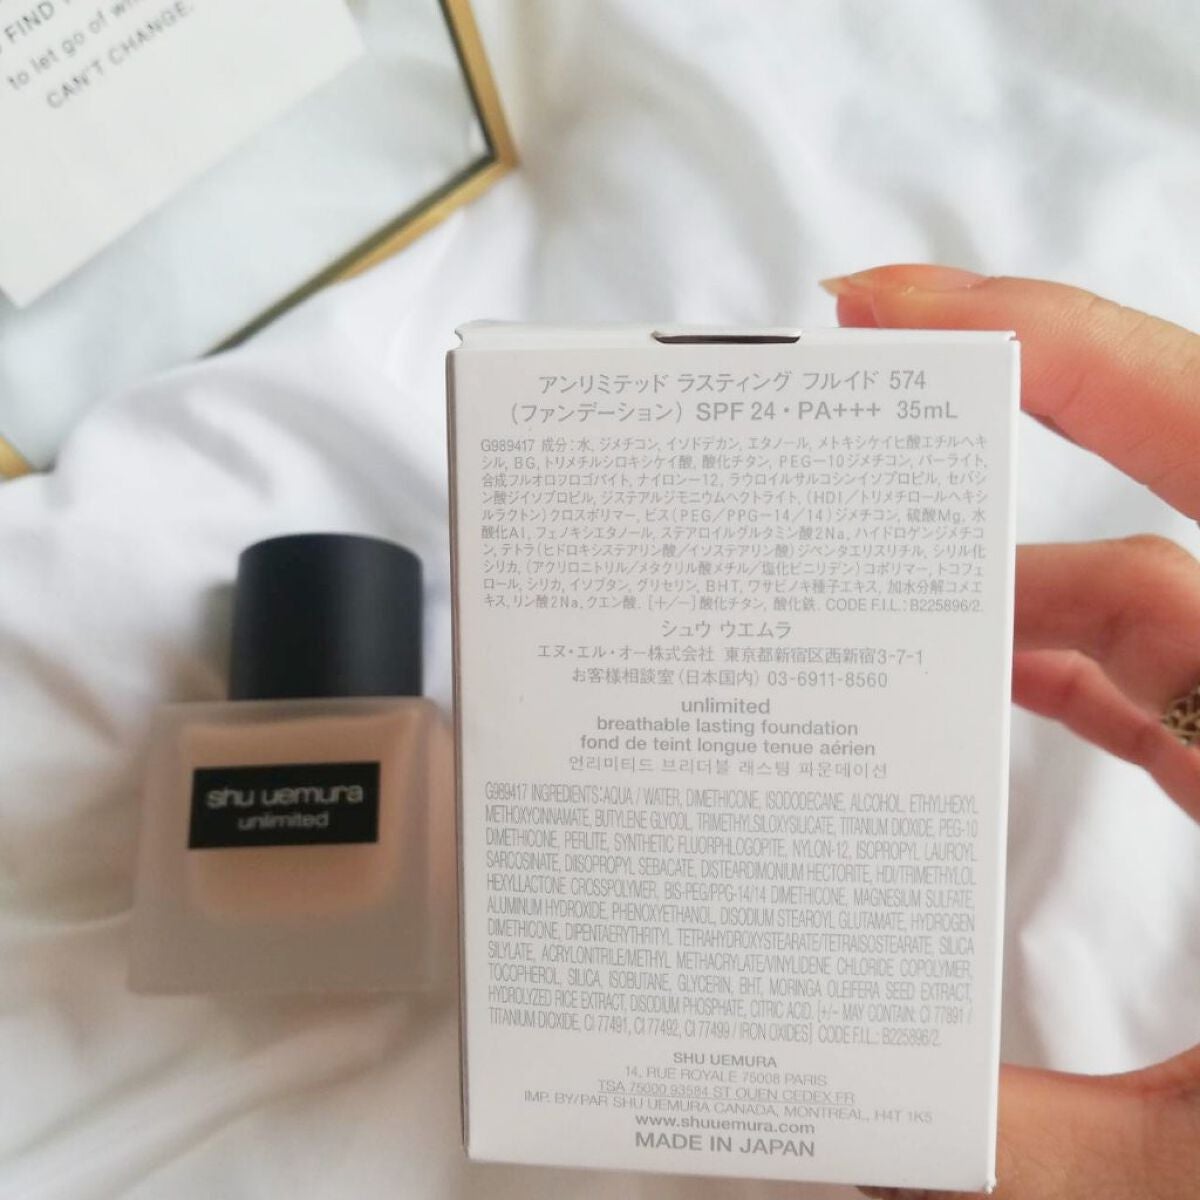 FIND
to let go of
CAN'T CHANGE.
shu uemura
unlimited
アンリミテッド ラスティング フルイド 574
(ファンデーション) SPF 24・PA+++ 35mL
G989417 成分:水, ジメチコン, イソドデカン, エタノール, メトキシケイヒ酸エチルヘキ
シル, BG, トリメチルシロキシケイ酸, 酸化チタン, PEG-10ジメチコン, パーライト,
合成フルオロフロゴパイト, ナイロン-12, ラウロイルサルコシンイソプロピル, セバシ
ン酸ジイソプロピル, ジステアルジモニウムヘクトライト, (HDI/トリメチロールヘキシ
ルラクトン)クロスポリマー, ビス(PEG/PPG-14/14)ジメチコン, 硫酸Mg, 水
酸化Al, フェノキシエタノール, ステアロイルグルタミン酸2Na, ハイドロゲンジメチコ
ン, テトラ(ヒドロキシステアリン酸/イソステアリン酸)ジペンタエリスリチル, シリル化
シリカ, (アクリロニトリル/メタクリル酸メチル/塩化ビニリデン)コポリマー, トコフェ
ロール, シリカ, イソブタン, グリセリン, BHT, ワサビノキ種子エキス, 加水分解コメエ
キス, リン酸2Na, クエン酸. [+/-]酸化チタン, 酸化鉄. CODE F.I.L.: B225896/2.
シュウ ウエムラ
エヌ・エル・オー株式会社 東京都新宿区西新宿3-7-1
お客様相談室(日本国内) 03-6911-8560
unlimited
breathable lasting foundation
fond de teint longue tenue aérien
언리미티드 브리더블 래스팅 파운데이션
G989417 INGREDIENTS: AQUA / WATER, DIMETHICONE, ISODODECANE, ALCOHOL, ETHYLHEXYL
METHOXYCINNAMATE, BUTYLENE GLYCOL, TRIMETHYLSILOXYSILICATE, TITANIUM DIOXIDE, PEG-10
DIMETHICONE, PERLITE, SYNTHETIC FLUORPHLOGOPITE, NYLON-12, ISOPROPYL LAUROYL
SARCOSINATE, DIISOPROPYL SEBACATE, DISTEARDIMONIUM HECTORITE, HDI/TRIMETHYLOL
HEXYLLACTONE CROSSPOLYMER, BIS-PEG/PPG-14/14 DIMETHICONE, MAGNESIUM SULFATE,
ALUMINUM HYDROXIDE, PHENOXYETHANOL, DISODIUM STEAROYL GLUTAMATE, HYDROGEN
DIMETHICONE, DIPENTAERYTHRITYL TETRAHYDROXYSTEARATE/TETRAISOSTEARATE, SILICA
SILYLATE, ACRYLONITRILE/METHYL METHACRYLATE/VINYLIDENE CHLORIDE COPOLYMER,
TOCOPHEROL, SILICA, ISOBUTANE, GLYCERIN, BHT, MORINGA OLEIFERA SEED EXTRACT,
HYDROLYZED RICE EXTRACT, DISODIUM PHOSPHATE, CITRIC ACID. [+/- MAY CONTAIN: CI 77891 /
TITANIUM DIOXIDE, CI 77491, CI 77492, CI 77499 / IRON OXIDES] CODE F.I.L.: B225896/2.
SHU UEMURA
14, RUE ROYALE 75008 PARIS
TSA 75000 93584 ST OUEN CEDEX FR
IMP. BY/PAR SHU UEMURA CANADA, MONTREAL, H4T 1K5
www.shuuemura.com
MADE IN JAPAN